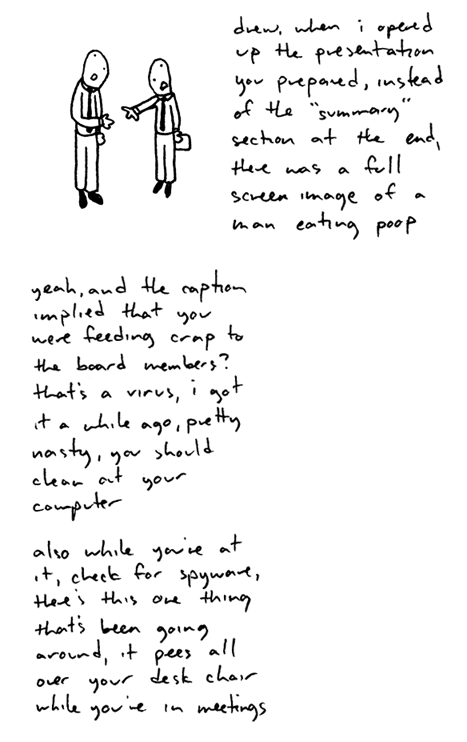 drew, when i opened
up the presentation
you prepared, instead
of the "summary"
section at the end,
there was a full
screen image of a
man eating poop
yeah, and the caption
implied that you
were feeding crap to
the board members?
that's a virus, i got
it a while ago, pretty
nasty, you should
clean out your
computer
also while you're at
it, check for spyware,
there's this one thing
that's been going
around, it pees all
over your desk chair
while you're in meetings